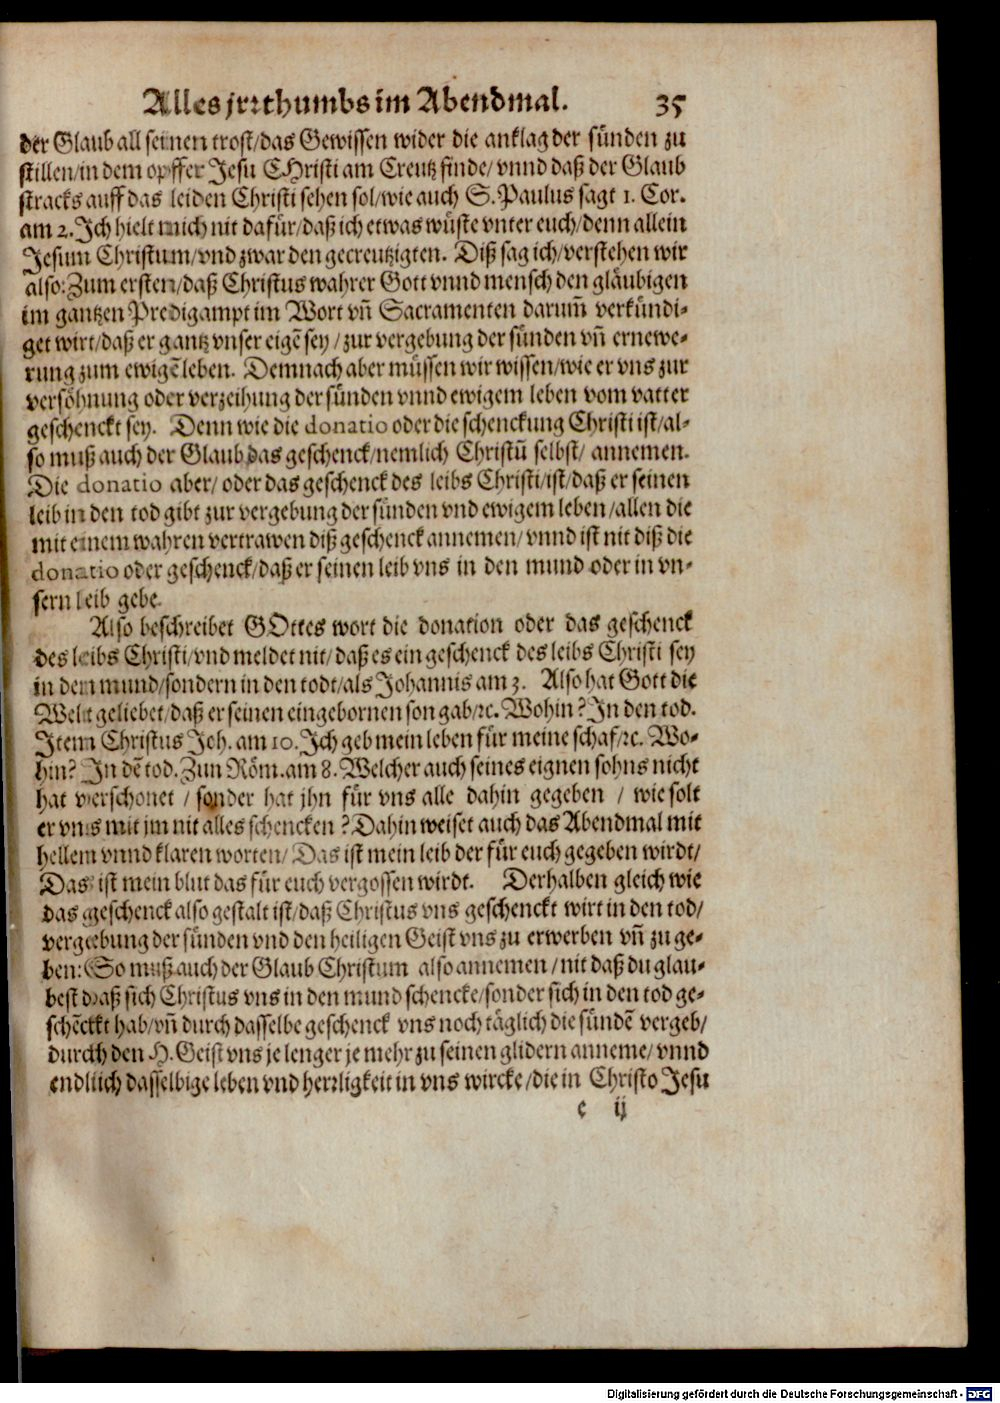 Alles jrrthumbs im Abendmal. 35
der Glaub all seinen trost/das Gewissen wider die anklag der sünden zu
stillen/in dem opffer Jesu CHristi am Creutz finde/vnnd daß der Glaub
stracks auff das leiden Christi sehen sol/wie auch S. Paulus sagt 1. Cor.
am 2. Jch hielt mich nit dafür/daß ich etwas wüste vnter euch/denn allein
Jesum Christum/vnd zwar den gecreutzigten. Diß sag ich/verstehen wir
also: Zum ersten/daß Christus wahrer Gott vnnd mensch den gläubigen
im gantzen Predigampt im Wort vñ Sacramenten darum̃ verkündi-
get wirt/daß er gantz vnser eigẽ sey/zur vergebung der sünden vñ ernewe-
rung zum ewigẽ leben. Demnach aber müssen wir wissen/wie er vns zur
versöhnung oder verzeihung der sünden vnnd ewigem leben vom vatter
geschenckt sey. Denn wie die donatio oder die schenckung Christi ist/al-
so muß auch der Glaub das geschenck/nemlich Christũ selbst/ annemen.
Die donatio aber/ oder das geschenck des leibs Christi/ist/daß er seinen
leib in den tod gibt zur vergebung der sünden vnd ewigem leben/allen die
mit einem wahren vertrawen diß geschenck annemen/vnnd ist nit diß die
donatio oder geschenck/daß er seinen leib vns in den mund oder in vn-
sern leib gebe.
Also beschreibet GOttes wort die donation oder das geschenck
des leibs Christi/vnd meldet nit/daß es ein geschenck des leibs Christi sey
in den mund/sondern in den todt/als Johannis am 3. Also hat Gott die
Welt geliebet/daß er seinen eingebornen son gab/ꝛc. Wohin? Jn den tod.
Jtem Christus Joh. am 10. Jch geb mein leben für meine schaf/ꝛc. Wo-
hin? Jn dẽ tod. Zun Röm. am 8. Welcher auch seines eignen sohns nicht
hat verschonet / sonder hat jhn für vns alle dahin gegeben / wie solt
er vns mit jm nit alles schencken? Dahin weiset auch das Abendmal mit
hellem vnnd klaren worten/ Das ist mein leib der für euch gegeben wirdt/
Das ist mein blut das für euch vergossen wirdt. Derhalben gleich wie
das geschenck also gestalt ist/daß Christus vns geschenckt wirt in den tod/
vergebung der sünden vnd den heiligen Geist vns zu erwerben vñ zu ge-
ben: So muß auch der Glaub Christum also annemen/nit daß du glau-
best daß sich Christus vns in den mund schencke/sonder sich in den tod ge-
schẽckt hab/vñ durch dasselbe geschenck vns noch täglich die sündẽ vergeb/
durch den H. Geist vns je lenger je mehr zu seinen glidern anneme/vnnd
endlich dasselbige leben vnd herrligkeit in vns wircke/die in Christo Jesu
e ij
Digitalisierung gefördert durch die Deutsche Forschungsgemeinschaft - DFG